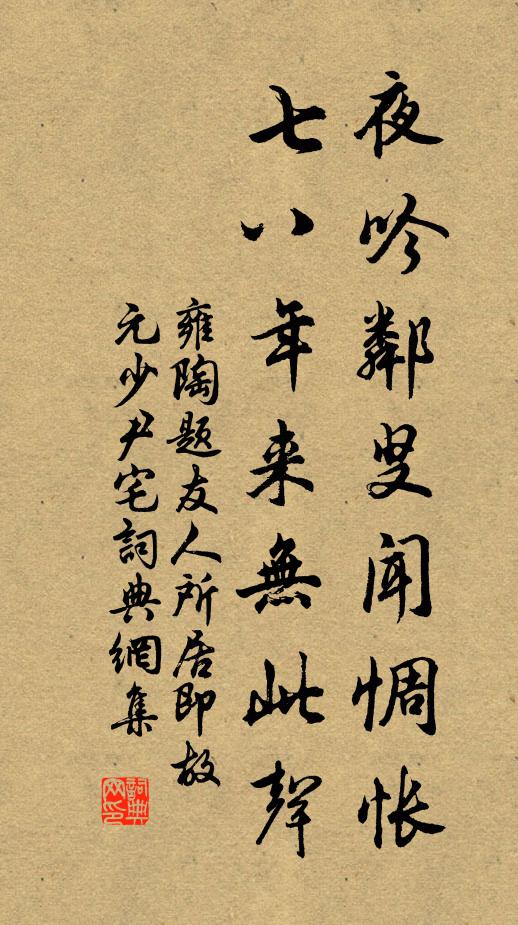 夜吟鄰叟聞惆悵
七八年来無此聲
雍陶題友人所居即故
元少尹宅詞典網集
詞典网印